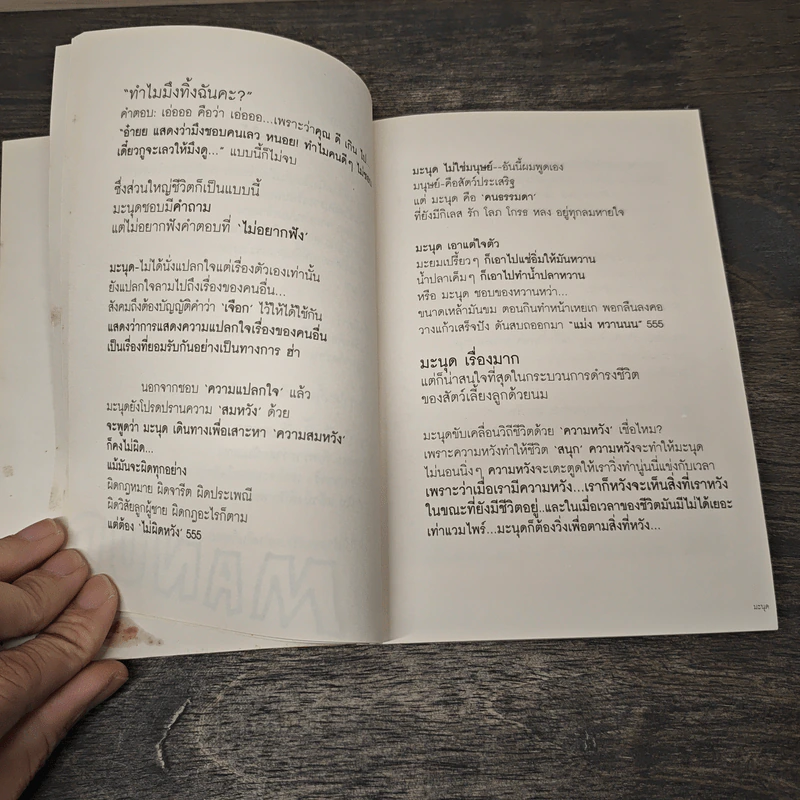 "ทำไมมึงทิ้งฉันคะ?"
คำตอบ: เอ่อออ คือว่า เอ่อออ...เพราะว่าคุณ ดี เกิน ไป
"อ๋ายย แสดงว่ามึงชอบคนเลว หนอย! ทำไมคนดีๆ
เดี๋ยวกูจะเลวให้มึงดู..." แบบนี้ก็ไม่จบ
ซึ่งส่วนใหญ่ชีวิตก็เป็นแบบนี้
มะนุดชอบมีคำถาม
แต่ไม่อยากฟังคำตอบที่ 'ไม่อยากฟัง'
มะนุด-ไม่ได้นั่งแปลกใจแต่เรื่องตัวเองเท่านั้น
ยังแปลกใจลามไปถึงเรื่องของคนอื่น...
สังคมถึงต้องบัญญัติคำว่า 'เจือก' ไว้ให้ได้ใช้กัน
แสดงว่าการแสดงความแปลกใจเรื่องของคนอื่น
เป็นเรื่องที่ยอมรับกันอย่างเป็นทางการ ฮ่า
นอกจากชอบ 'ความแปลกใจ' แล้ว
มะนุดยังโปรดปรานความ 'สมหวัง' ด้วย
จะพูดว่า มะนุด เดินทางเพื่อเสาะหา 'ความสมหวัง'
ก็คงไม่ผิด...
แม้มันจะผิดทุกอย่าง
ผิดกฎหมาย ผิดจารีต ผิดประเพณี
ผิดวิสัยลูกผู้ชาย ผิดกฎอะไรก็ตาม
แต่ต้อง 'ไม่ผิดหวัง' 555
มะนุด ไม่ใช่มนุษย์--อันนี้ผมพูดเอง
มนุษย์-คือสัตว์ประเสริฐ
แต่ มะนุด คือ 'คนธรรมดา'
ที่ยังมีกิเลส รัก โลภ โกรธ หลง อยู่ทุกลมหายใจ
มะนุด เอาแต่ใจตัว
มะยมเปรี้ยวๆ ก็เอาไปแช่อิ่มให้มันหวาน
น้ำปลาเค็มๆ ก็เอาไปทำน้ำปลาหวาน
หรือ มะนุด ชอบของหวานหว่า...
ขนาดเหล้ามันขม ตอนกินทำหน้าเหยเก พอกลืนลงคอ
วางแก้วเสร็จปัง ดันสบถออกมา "แม่ง หวานนน" 555
มะนุด เรื่องมาก
แต่ก็น่าสนใจที่สุดในกระบวนการดำรงชีวิต
ของสัตว์เลี้ยงลูกด้วยนม
มะนุดขับเคลื่อนวิถีชีวิตด้วย 'ความหวัง' เชื่อไหม?
เพราะความหวังทำให้ชีวิต 'สนุก' ความหวังจะทำให้มะนุด
ไม่นอนนิ่งๆ ความหวังจะเตะตูดให้เราวิ่งทำนู่นนี่แข่งกับเวลา
เพราะว่าเมื่อเรามีความหวัง...เราก็หวังจะเห็นสิ่งที่เราหวัง
ในขณะที่ยังมีชีวิตอยู่..และในเมื่อเวลาของชีวิตมันมีไม่ได้เยอะ
เท่าแวมไพร์...มะนุดก็ต้องวิ่งเพื่อตามสิ่งที่หวัง...
มะนุด